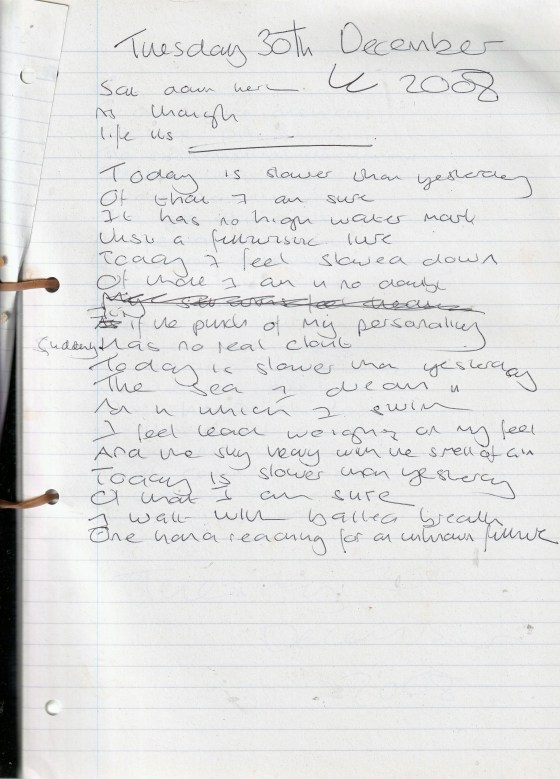 Tuesday 30th December
2008
Sat down here
as though
life is
Today is slower than yesterday
Of that I am sure
It has no high water mark
Today I feel slowed down
Of that I am in no doubt
if the punch of my personality
Suddenly has no real clout
Today is slower than yesterday
The sea I dream in
in which I swim
I feel lead weighing on my feet
And the sky heavy with the smell of
Today is slower than yesterday
Of that I am sure
I walk with bated breath
One hand reaching for an unknown future